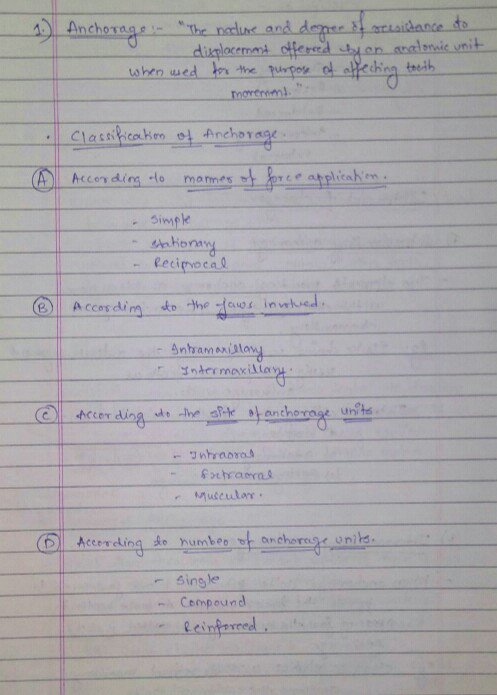 1.) Anchorage :- "The nature and degree of resistance to
displacement offered by an anatomic unit
when used for the purpose of affecting tooth
movement."
• Classification of Anchorage.
(A) According to manner of force application.
- Simple
- Stationary
- Reciprocal
(B) According to the jaws involved.
- Intramaxillary
- Intermaxillary.
(C) According to the site of anchorage units
- Intraoral
- Extraoral
- Muscular.
(D) According to number of anchorage units.
- Single
- Compound
- Reinforced.